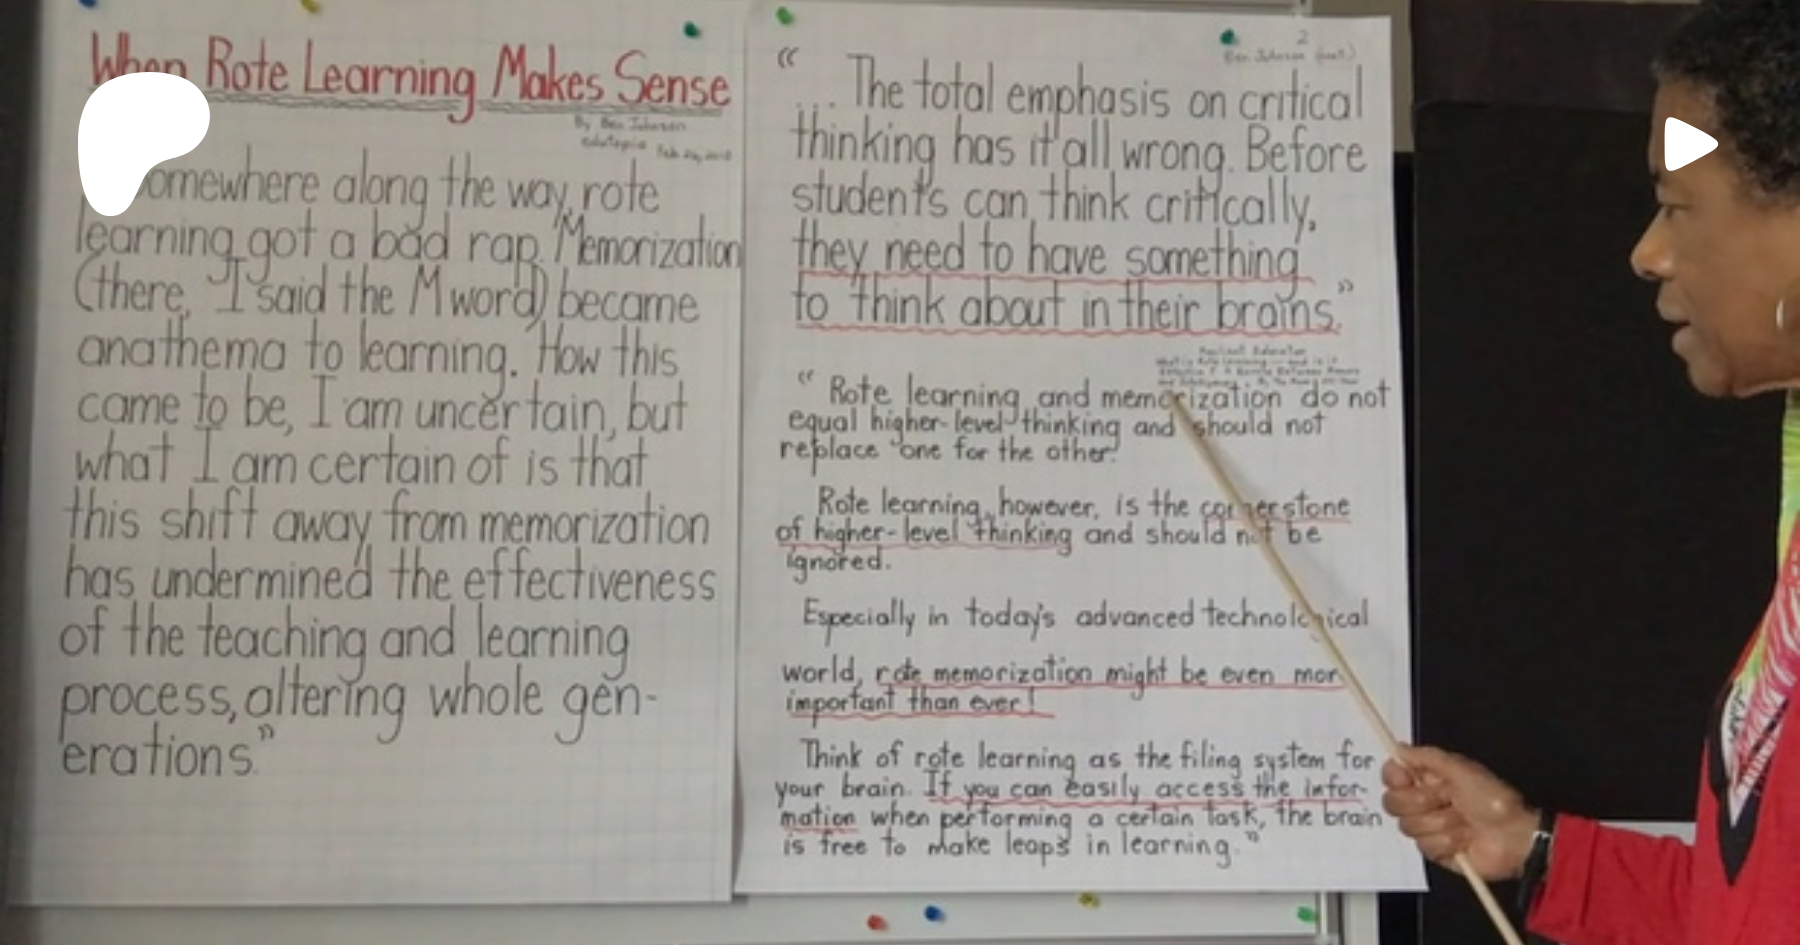 When Rote Learning Makes Sense
By Ben Johnson
edutopia Feb
omewhere along the way, rote
learning got a bad rap. Memorization
(there, I said the M word) became
anathema to learning. How this
came to be, I am uncertain, but
what I am certain of is that
this shift away from memorization
has undermined the effectiveness
of the teaching and learning
process, altering whole gen-
erations."
2
Ben Johnson (cont.)
"
... The total emphasis on critical
thinking has it all wrong. Before
students can think critically,
they need to have something
to think about in their brains."
"Rote learning and memorization do not
equal higher-level thinking and should not
replace one for the other.
Rote learning, however, is the cornerstone
of higher-level thinking and should not be
ignored.
Especially in today's advanced technological
world, rote memorization might be even mor
important than ever!
Think of rote learning as the filing system for
your brain. If you can easily access the infor-
mation when performing a certain task, the brain
is free to make leaps in learning."